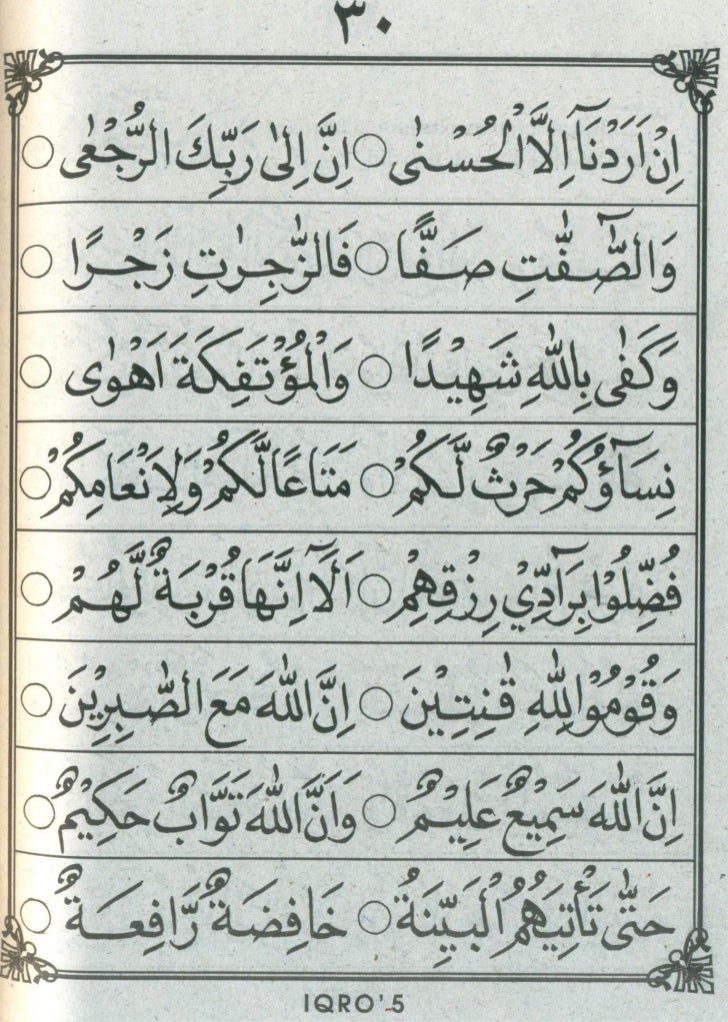 ٣٠
اِنْ اَرَدْنَآ اِلَّا الْحُسْنٰى ○ اِنَّ اِلٰى رَبِّكَ الرُّجْعٰى ○
وَالصّٰٓفّٰتِ صَفًّا ○ فَالزّٰجِرٰتِ زَجْرًا ○
وَكَفٰى بِاللّٰهِ شَهِيْدًا ○ وَالْمُؤْتَفِكَةَ اَهْوٰى ○
نِسَآؤُكُمْ حَرْثٌ لَّكُمْ ○ مَتَاعًا لَّكُمْ وَلِاَنْعَامِكُمْ ○
فُضِّلُوْا بِرَآدِّيْ رِزْقِهِمْ ○ اَلَآ اِنَّهَا قُرْبَةٌ لَّهُمْ ○
وَقُوْمُوْا لِلّٰهِ قٰنِتِيْنَ ○ اِنَّ اللّٰهَ مَعَ الصّٰبِرِيْنَ ○
اِنَّ اللّٰهَ سَمِيْعٌ عَلِيْمٌ ○ وَاَنَّ اللّٰهَ تَوَّابٌ حَكِيْمٌ ○
حَتّٰى تَأْتِيَهُمُ الْبَيِّنَةُ ○ خَافِضَةٌ رَّافِعَةٌ ○
IQRO'5